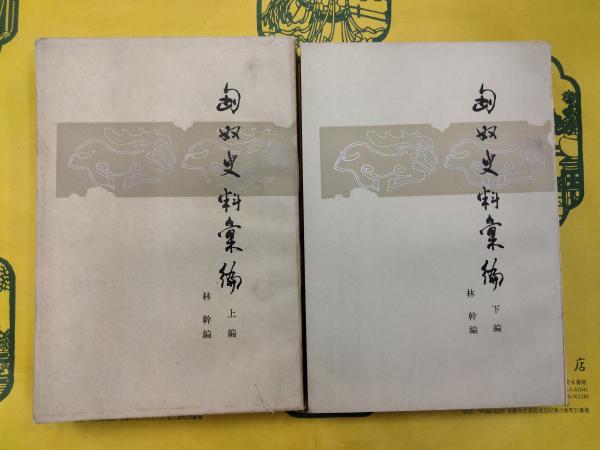 匈奴史料彙編
上編
林幹編
匈奴史料彙編
下編
林幹編
店